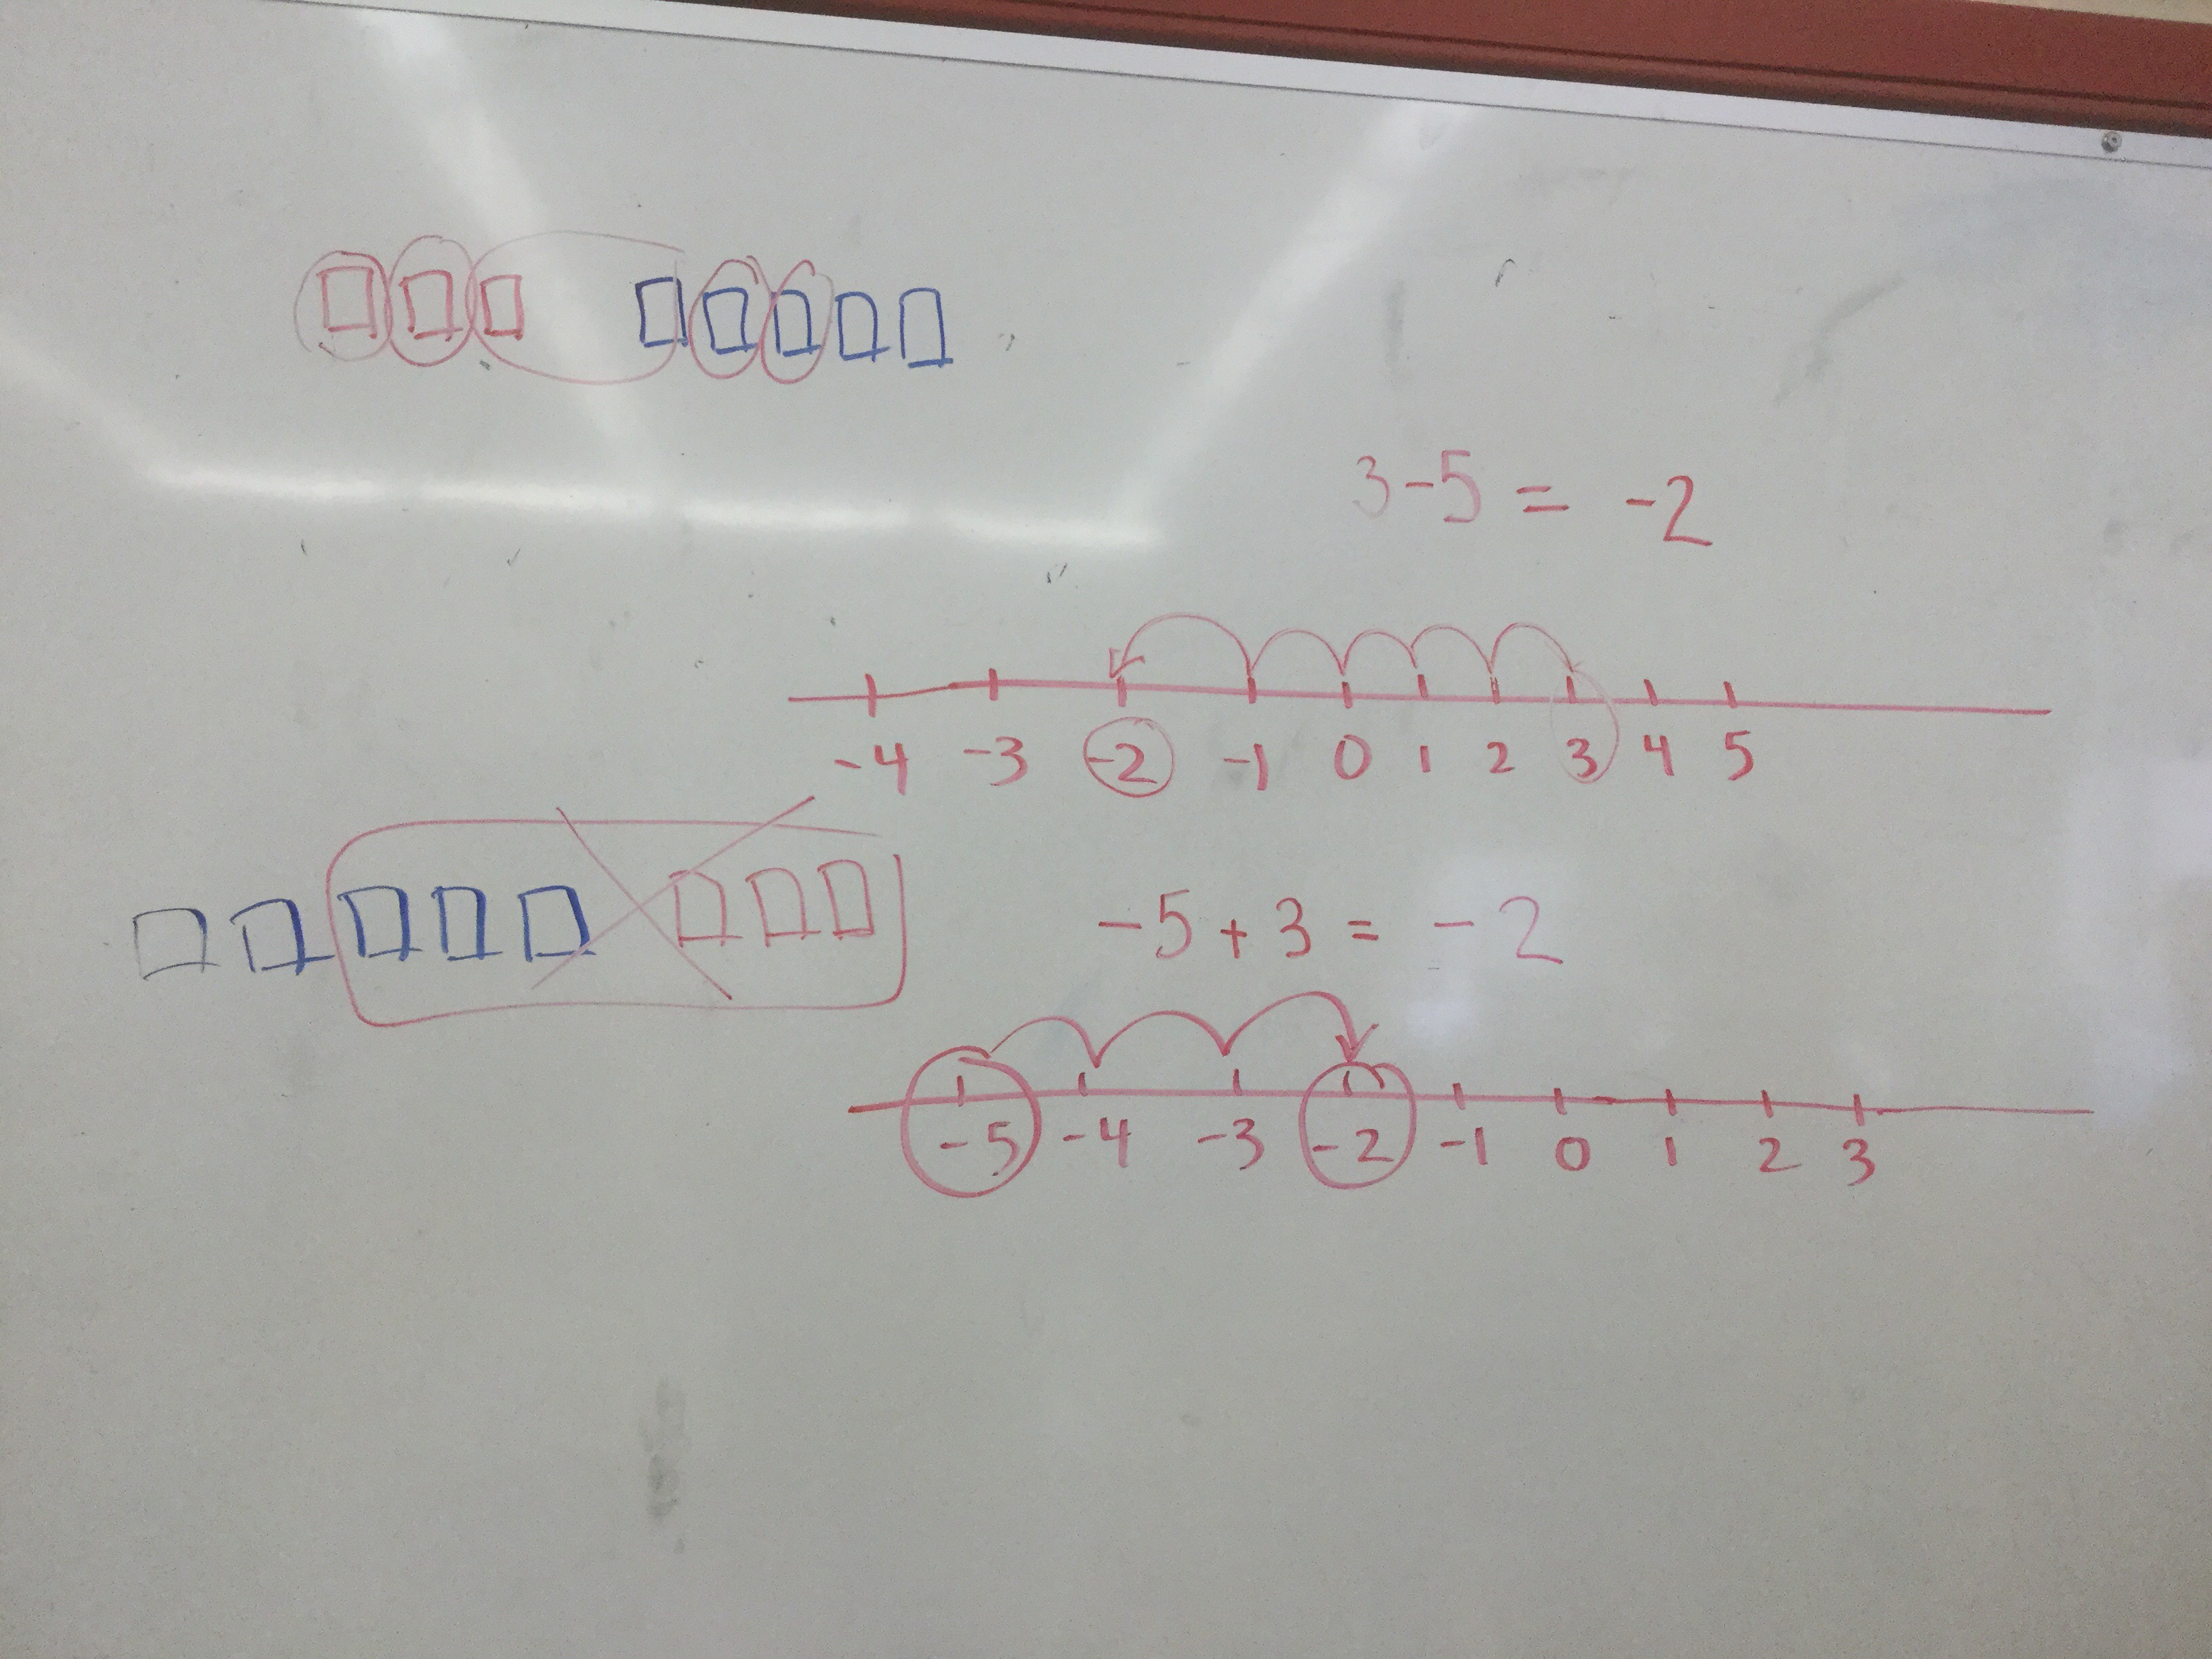 3-5 = -2
-4 -3 -2 -1 0 1 2 3 4 5
-5+3 = -2
-5 -4 -3 -2 -1 0 1 2 3